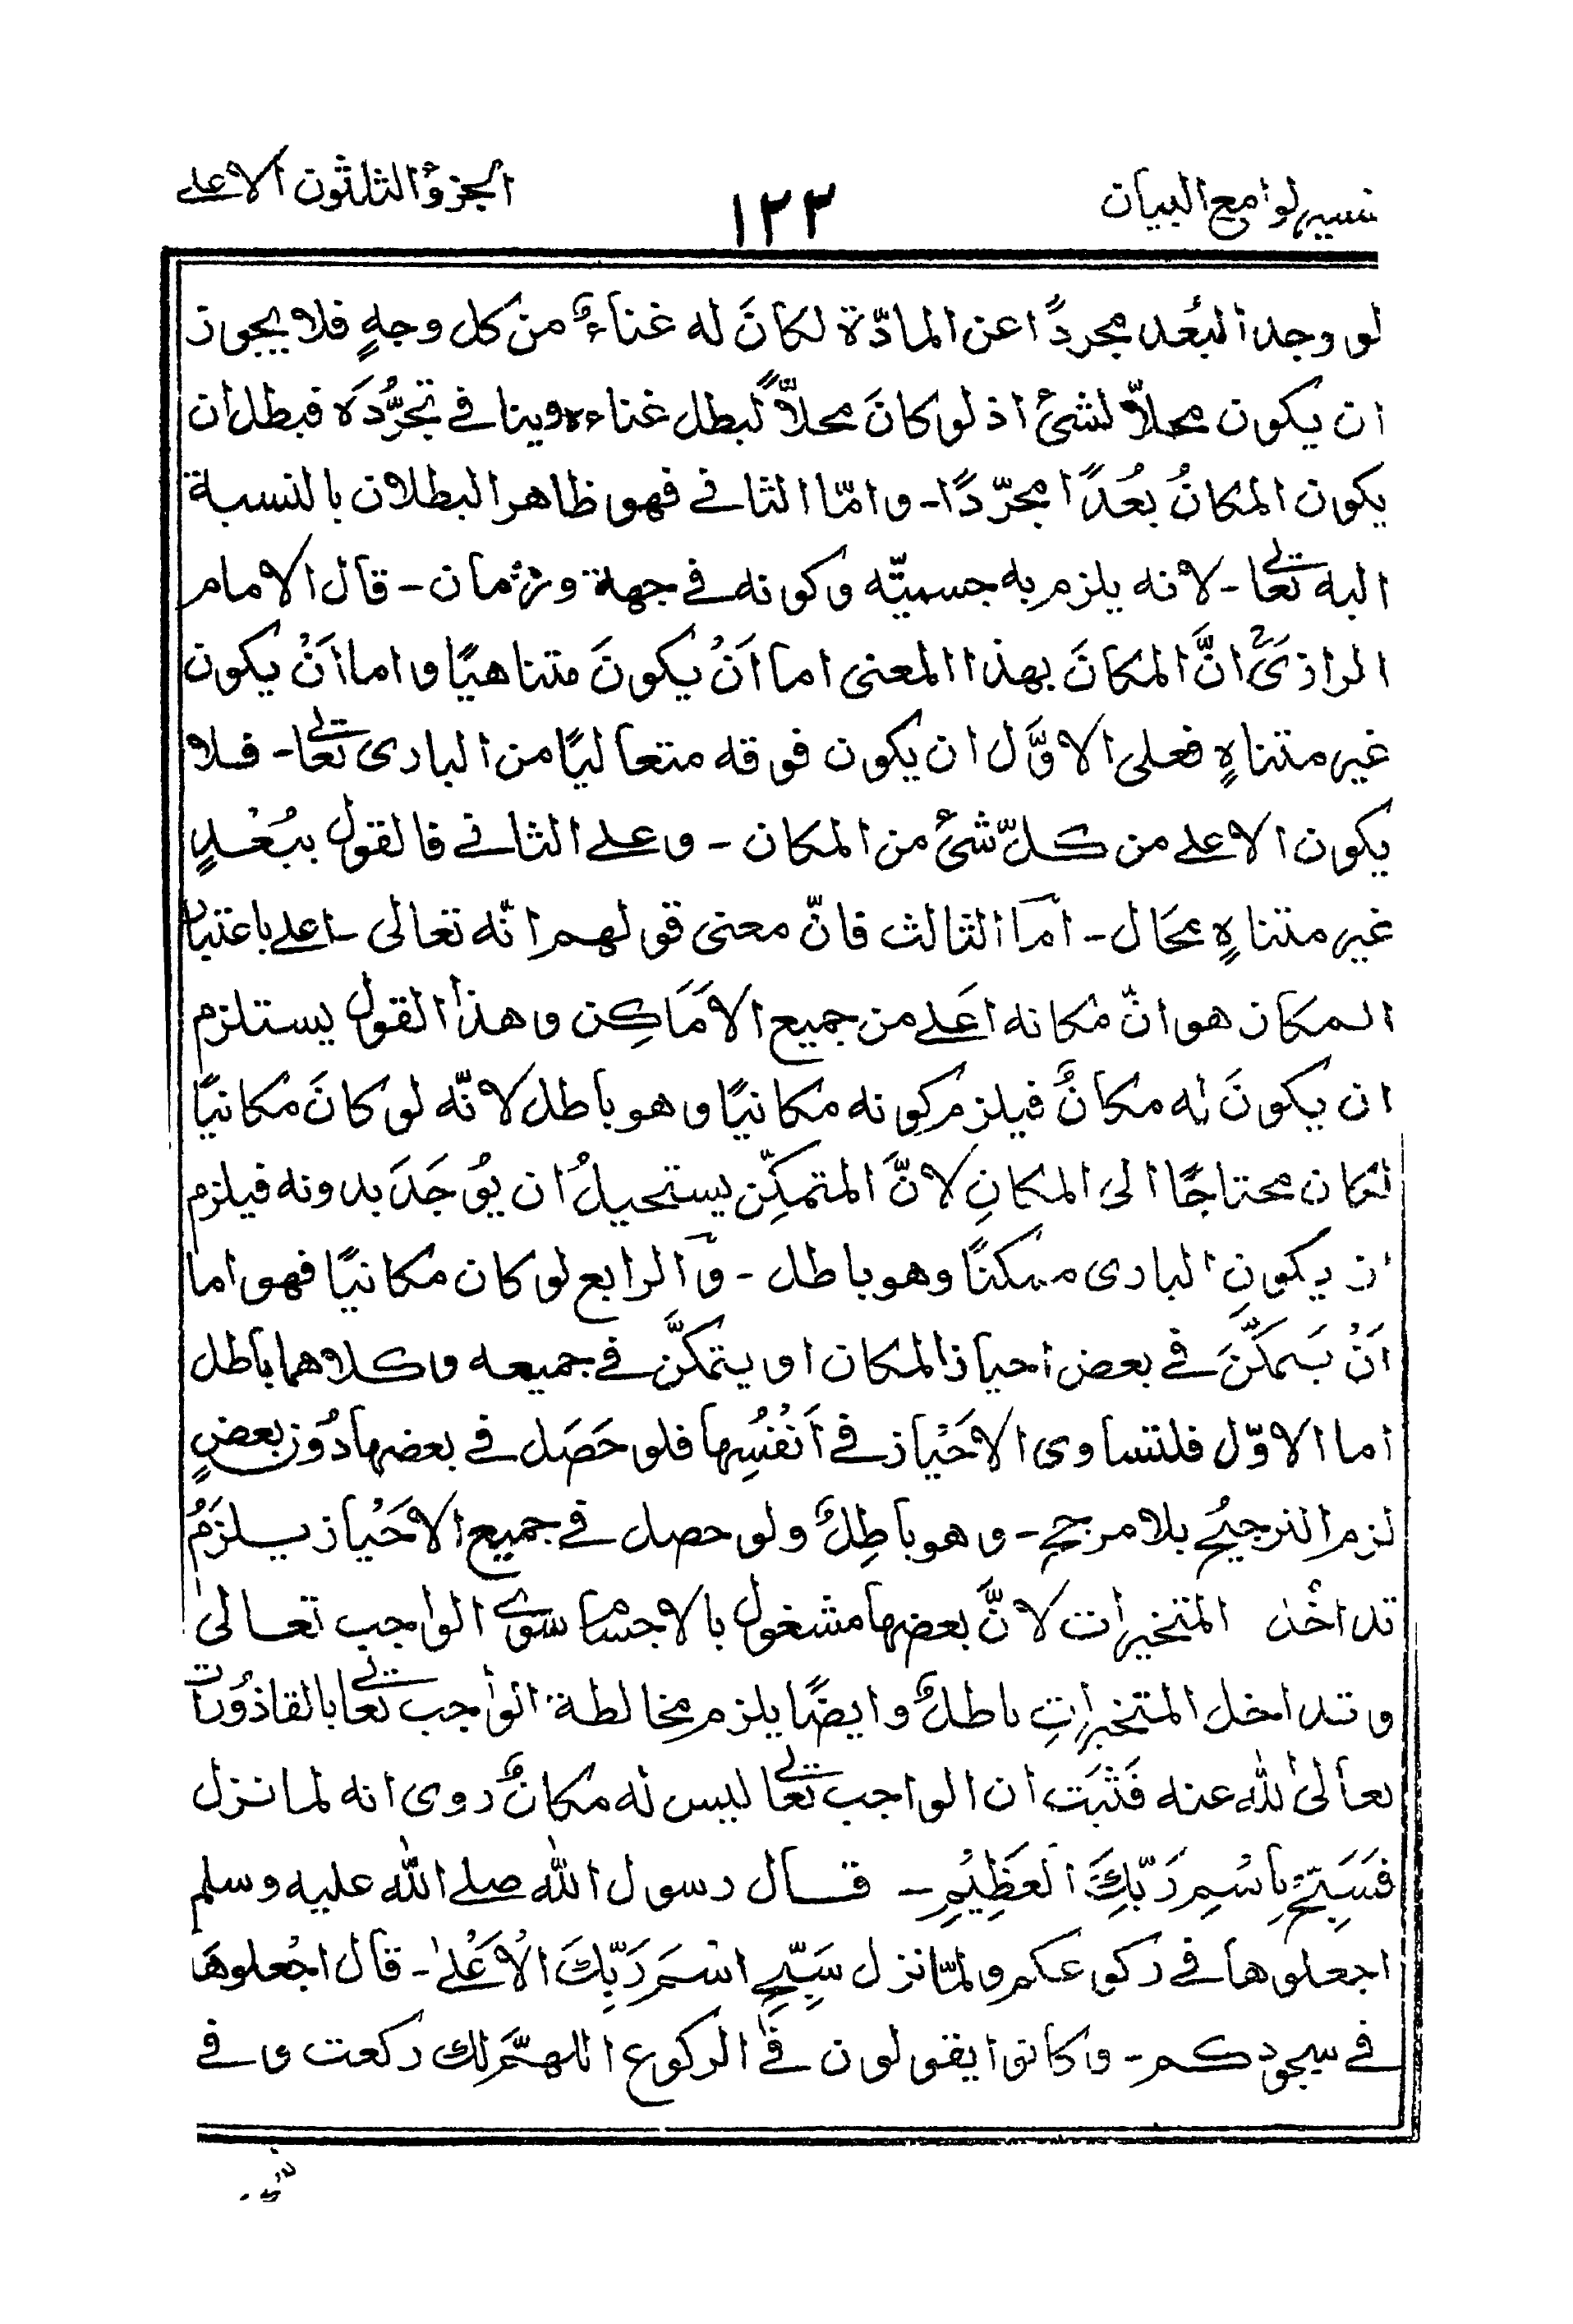 تفسير لوامع البيان
١٢٣
الجزؤ الثلثون الاعلے
لو وجد البُعد مجردًا عن المادّة لكانَ له غناءٌ من كل وجهٍ فلا يجوز
ان يكون محلاّ لشئ اذ لو كانَ محلاًّ لبطل غناءه وينافے تجرُّدَه فبطل ان
يكون المكانُ بعُدًا مجرّدًا - وامّا الثانے فهو ظاهر البطلان بالنسبة
اليه تعالٰے - لانه يلزم به جسميّته وكونه فے جهة وزمان - قال الامام
الرازیؒ انَّ المكانَ بهذا المعنى اما اَنْ يكونَ متناهيًا واما اَنْ يكون
غير متناهٍ فعلى الاوَّل ان يكون فوقه متعاليًا من البارى تعالٰے - فلا
يكون الاعلے من كلّ شئ من المكان - وعلے الثانے فالقول ببُعْدٍ
غير متناهٍ محال - اما الثالث فانّ معنى قولهم انّه تعالى اعلے باعتبار
المكان هو انّ مكانه اَعلے من جميع الاَمَاكِن وهذا القول يستلزم
ان يكونَ له مكانٌ فيلزم كونه مكانيًا وهو باطل لانّه لو كانَ مكانيًا
لكان محتاجًا الى المكانِ لانَّ المتمكِّن يستحيلُ ان يُوجَدَ بدونه فيلزم
ان يكونِ البارى ممكنًا وهو باطل - وٓ الرابع لو كان مكانيًا فهو اما
اَنْ يتمَكَّنَ فے بعض احياز المكان او يتمكَّن فے جميعه وكلاهما باطل
اما الاوّل فلتساوى الاَحْياز فے اَنْفُسِها فلو حَصَل فے بعضها دُون بعضٍ
لزم الترجيحُ بلا مرجحٍ - وهو باطِلٌ ولو حصل فے جميع الاَحْياز يلزَمُ
تداخُل المتحيرات لانَّ بعضها مشغول بالاجسام سوے الواجب تعالىٰ
وتداخل المتحيراتِ باطلٌ وايضًا يلزم مخالطة الواجب تعالٰے بالقاذوُرات
تعالىٰ الله عنه فَثَبَت ان الواجب تعالٰے ليس له مكانٌ روى انه لما نزل
فَسَبِّحْ بِاسْمِ رَبِّكَ الْعَظِيْمِ - قال رسول الله صلے الله عليه وسلم
اجعلوها فے ركوعكم ولمّا نزل سَبِّحِ اسْمَ رَبِّكَ الْاَعْلٰے - قال اجْعلوها
فے سجودكم - وكانوا يقولون فے الركوع اللهمَّ لك ركعت وفے